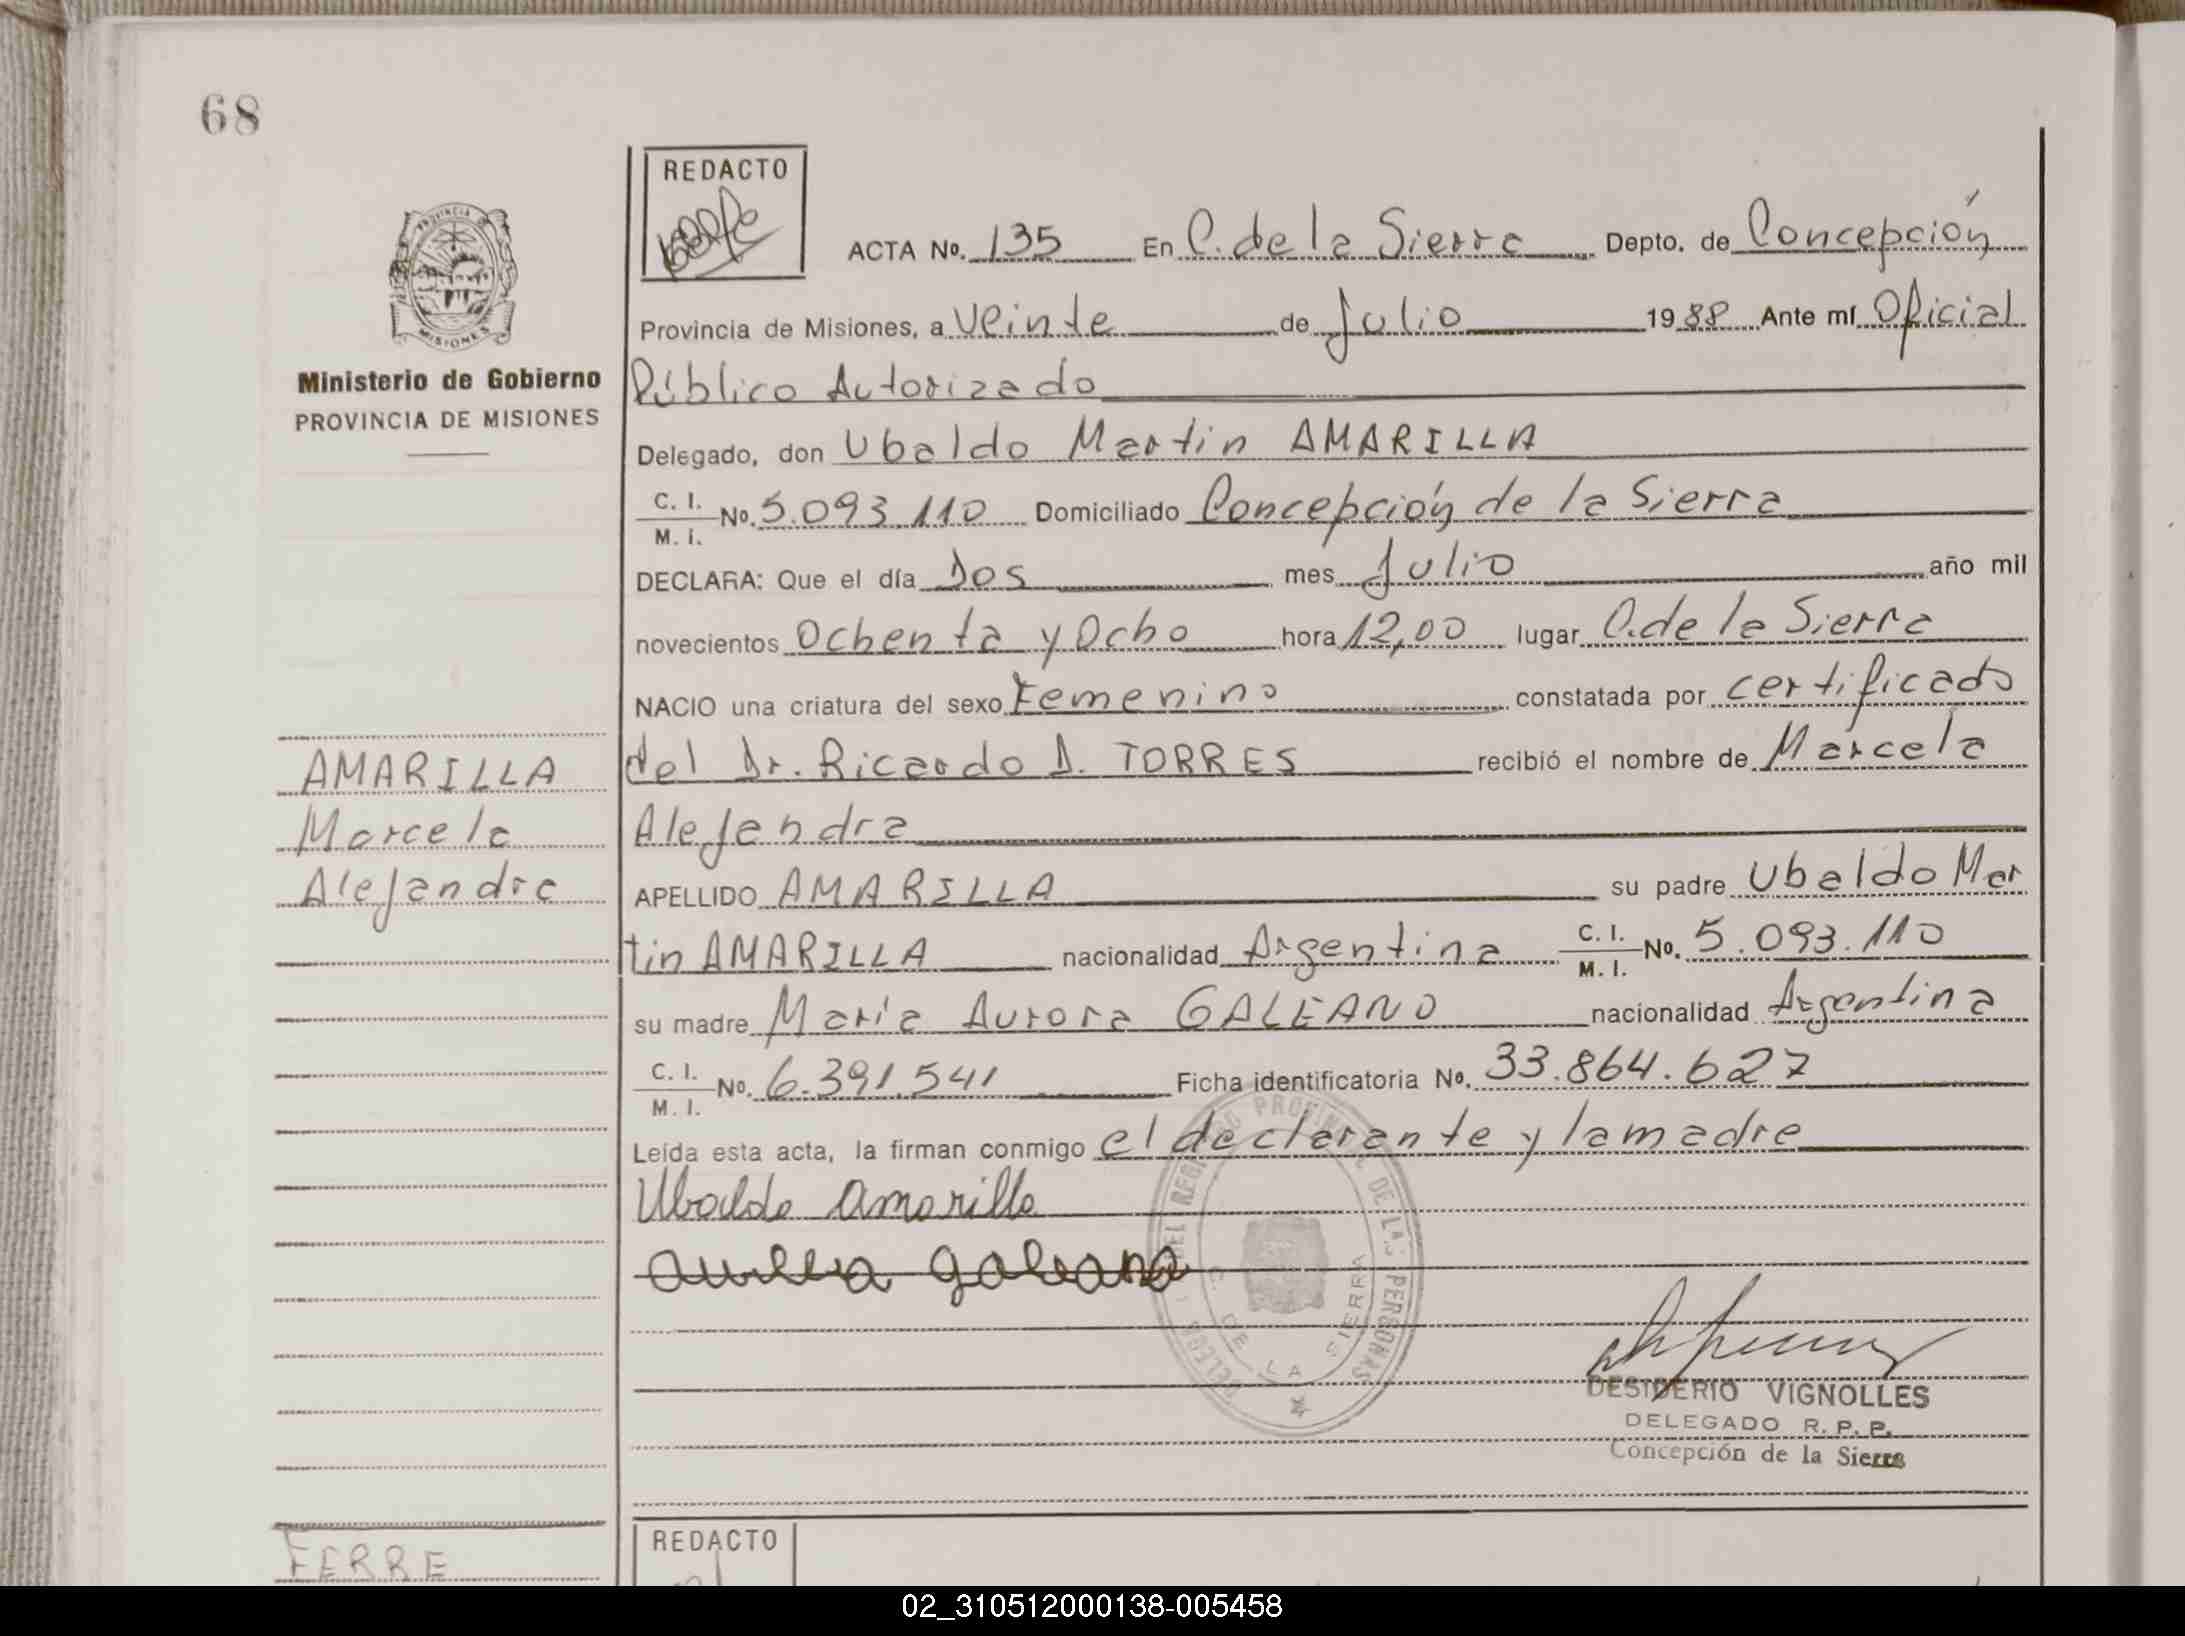 68
REDACTO
ACTA No. 135 En C. de la Sierra Depto. de Concepción
Provincia de Misiones, a Veinte de Julio 1988 Ante mí Oficial
Público Autorizado
Delegado, don Ubaldo Martin AMARILLA
C. I. M. I. No. 5.093.110 Domiciliado Concepción de la Sierra
DECLARA: Que el día Dos mes Julio año mil
novecientos Ochenta y Ocho hora 12,00 lugar C. de la Sierra
NACIO una criatura del sexo Femenino constatada por certificado
del Dr. Ricardo D. TORRES recibió el nombre de Marcela
Alejandra
APELLIDO AMARILLA su padre Ubaldo Mar
tin AMARILLA nacionalidad Argentina C. I. M. I. No. 5.093.110
su madre María Aurora GALEANO nacionalidad Argentina
C. I. M. I. No. 6.391.541 Ficha identificatoria No. 33.864.627
Leída esta acta, la firman conmigo el declarante y la madre
Ubaldo Amarilla
galeano
DESIDERIO VIGNOLLES
DELEGADO R. P. P.
Concepción de la Sierra
DEL REGISTRO PROVINCIAL DE LAS PERSONAS
C. DE LA SIERRA
PROVINCIA DE
MISIONES
Ministerio de Gobierno
PROVINCIA DE MISIONES
AMARILLA
Marcela
Alejandra
FERRE
REDACTO
02_310512000138-005458